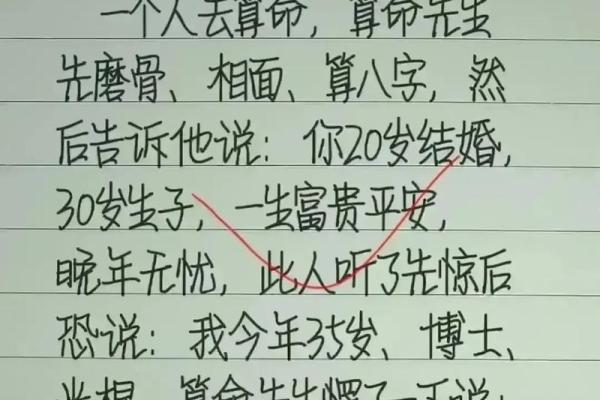 一个人去算命，算命先生
先磨骨、相面、算八字，然
后告诉他说：你20岁结婚，
30岁生子，一生富贵平安，
晚年无忧，此人听了先惊后
恐说：我今年35岁、博士、
光棍，算命先生愣了一下说：